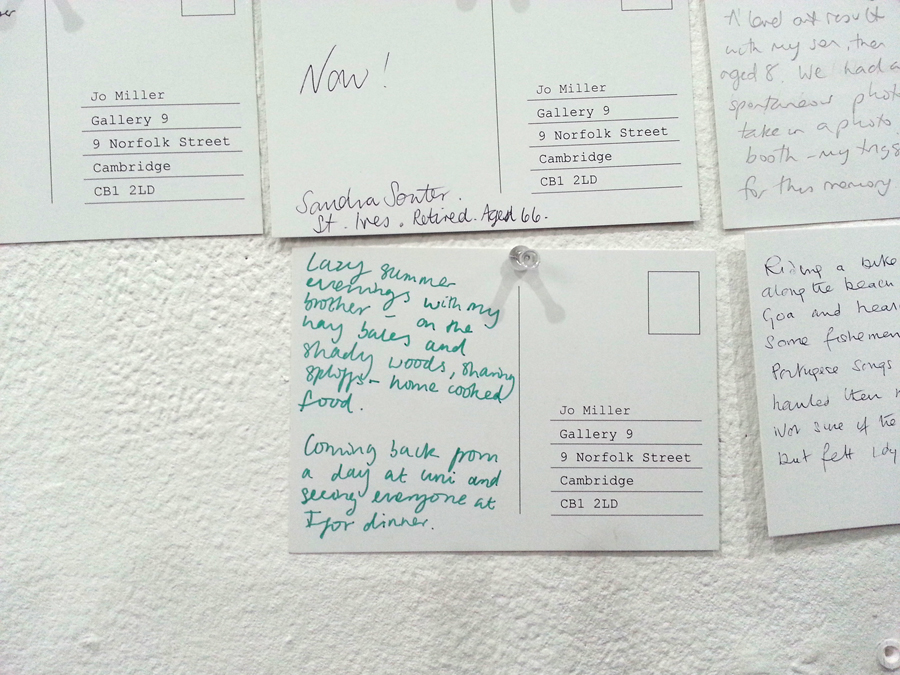 Jo Miller
Gallery 9
9 Norfolk Street
Cambridge
CB1 2LD
Now!
Sandra Souter.
St. Ives. Retired. Aged 66.
Jo Miller
Gallery 9
9 Norfolk Street
Cambridge
CB1 2LD
out result
with my son, then
aged 8. We had a
spontaneous photo
take in a photo
booth - my
for this memory
Lazy summer
evenings with my
brother - on the
hay bales and
shady woods, sharing
spliffs - home cooked
food.
Coming back from
a day at uni and
seeing everyone at
for dinner.
Jo Miller
Gallery 9
9 Norfolk Street
Cambridge
CB1 2LD
Riding a bike
along the beach
Goa and
some fishermen
Portugese songs
hauled their
Not sure if the
but felt